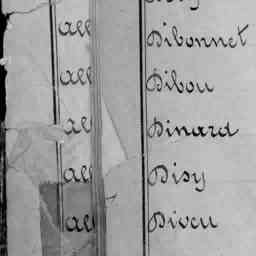 all Dibonnet
all Dibou
all Dinard
all Disy
all Diveu